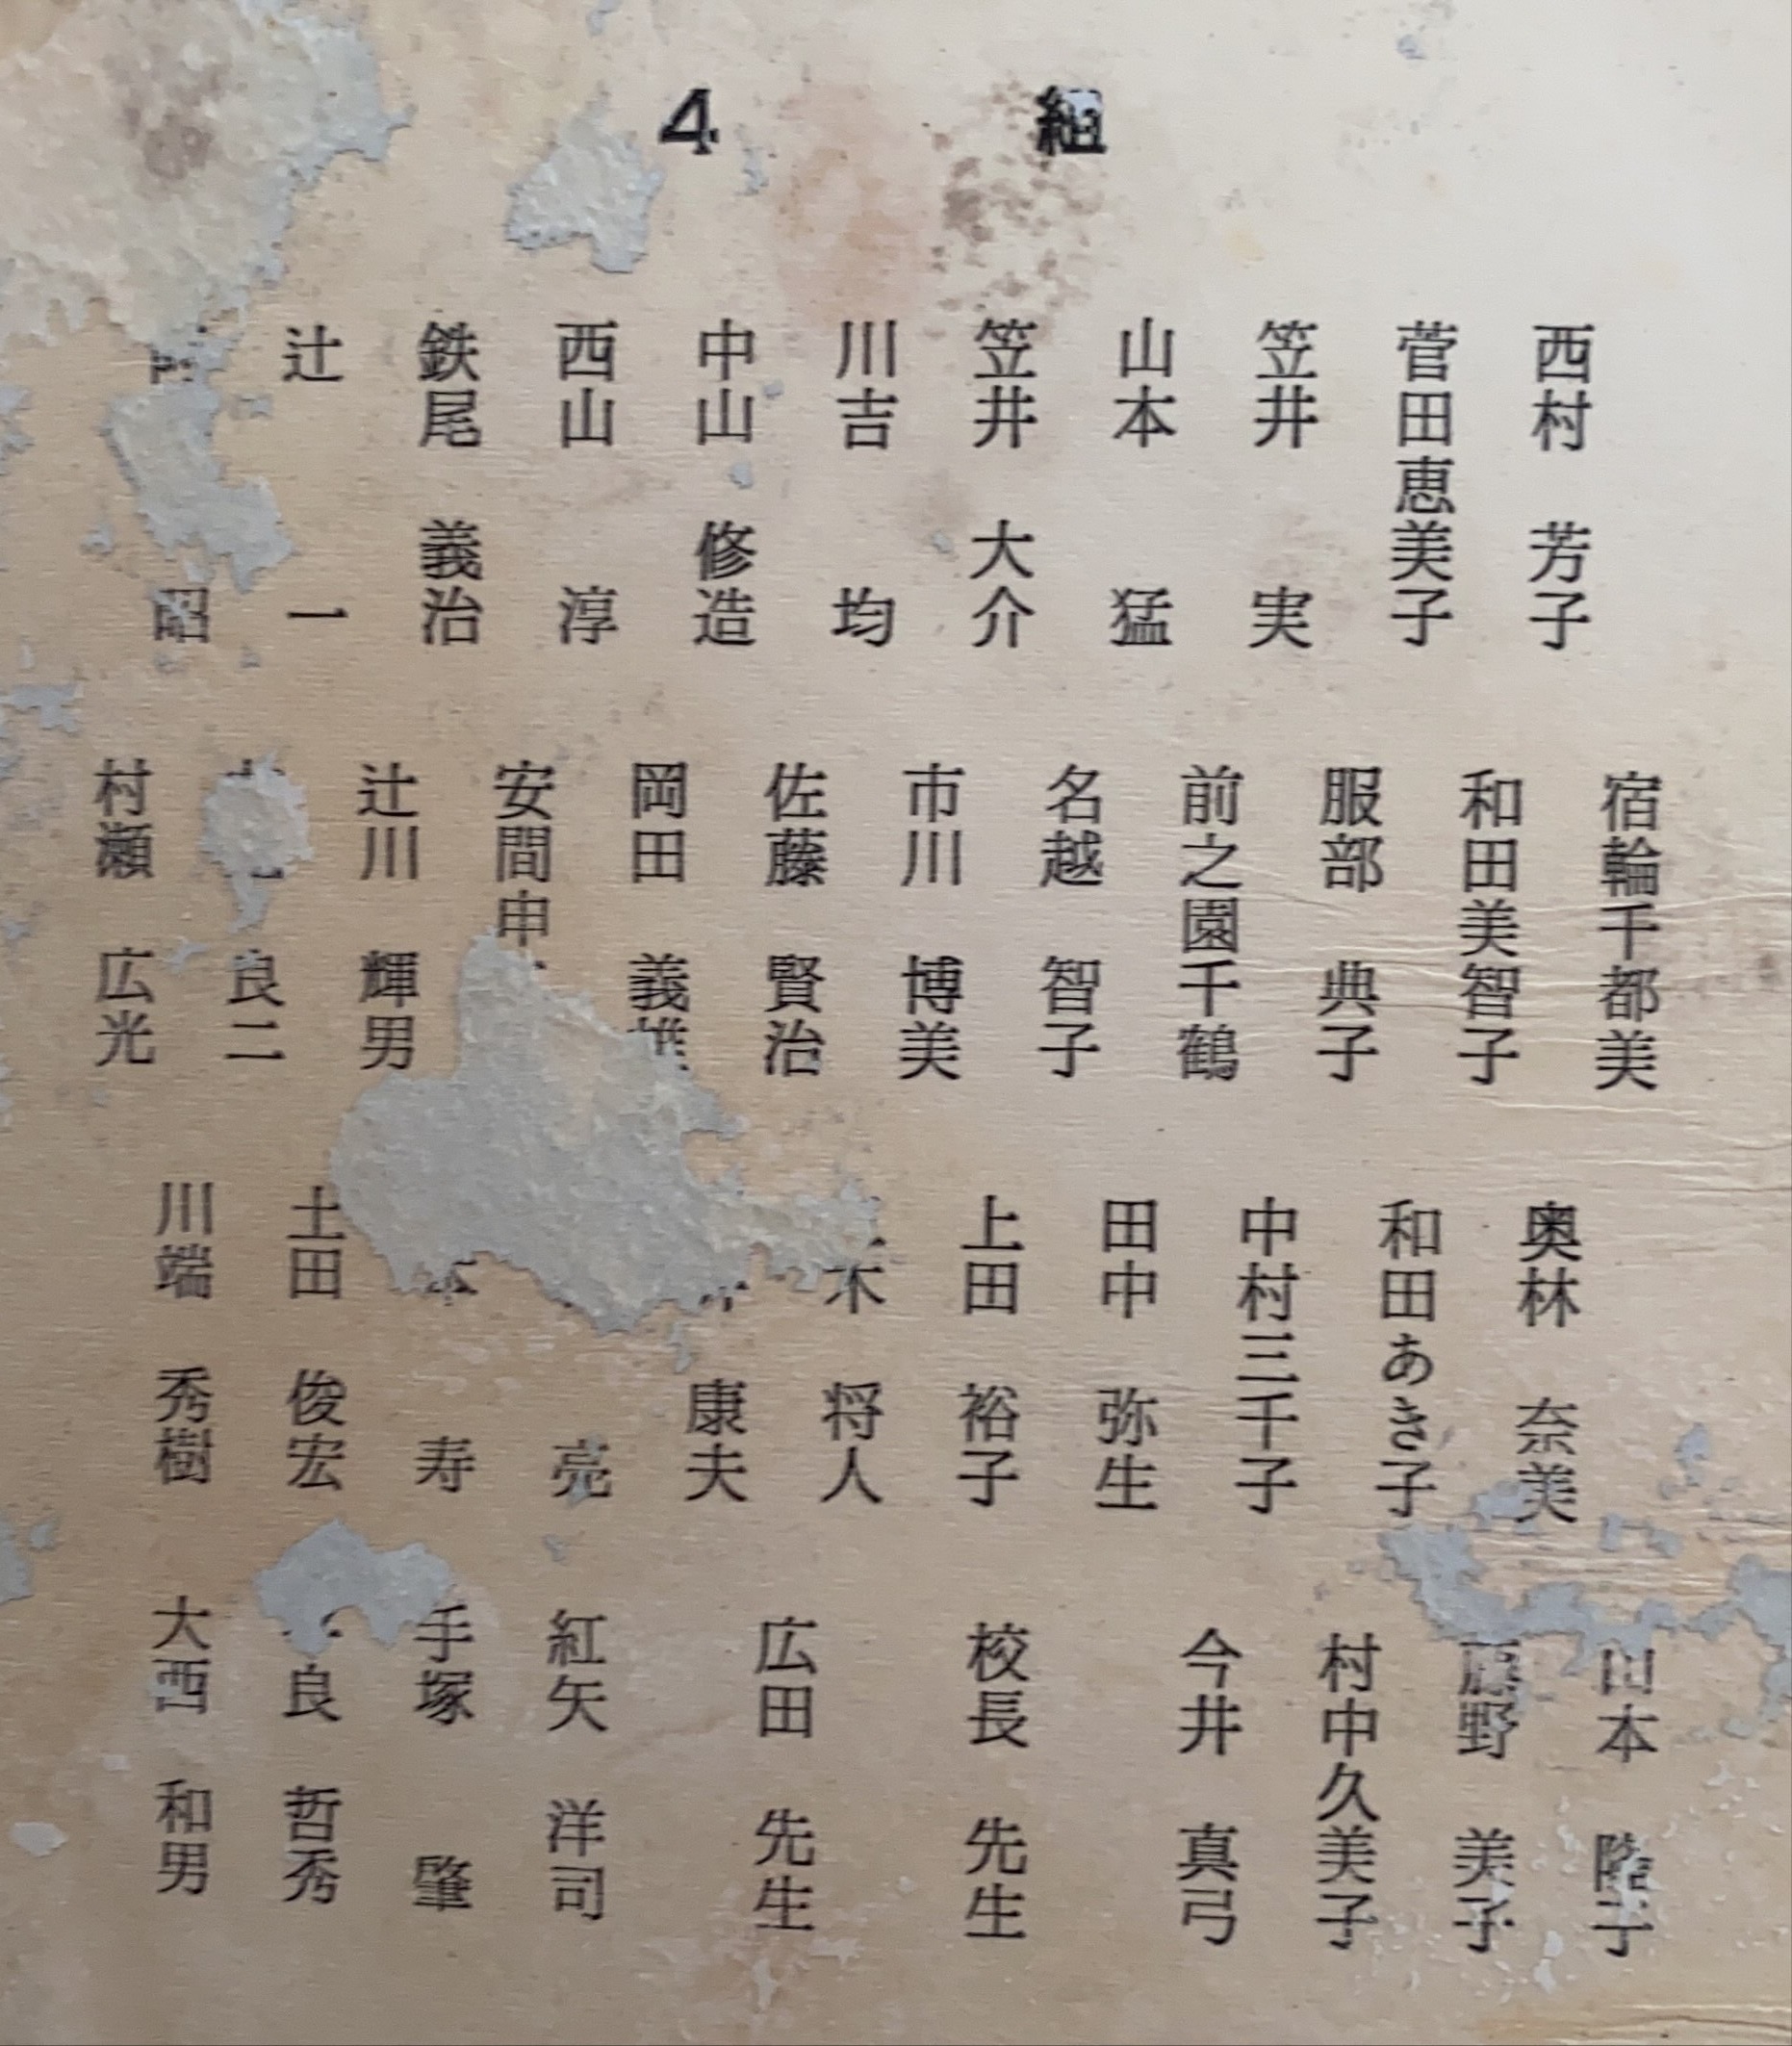 4組
西村 芳子
菅田恵美子
笠井 実
山本 猛
笠井 大介
川吉 均
中山 修造
西山 淳
鉄尾 義治
辻 一
昭
宿輪千都美
和田美智子
服部 典子
前之園千鶴
名越 智子
市川 博美
佐藤 賢治
岡田 義雄
安間申
辻川 輝男
良二
村瀬 広光
奥林 奈美
和田あき子
中村三千子
田中 弥生
上田 裕子
木 将人
康夫
亮
寿
土田 俊宏
川端 秀樹
山本 隆子
藤野 美子
村中久美子
今井 真弓
校長 先生
広田 先生
紅矢 洋司
手塚 肇
良 哲秀
大西 和男